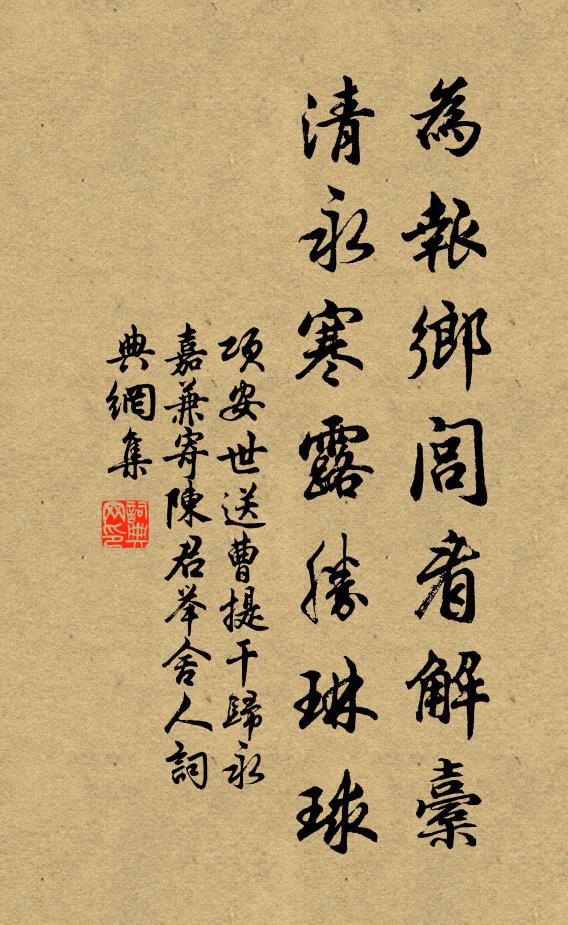 為報鄉閭看解橐
清永寒露勝琳球
項安世送曹提干歸永
嘉兼寄陳君举舍人詞
典網集
詞典网印